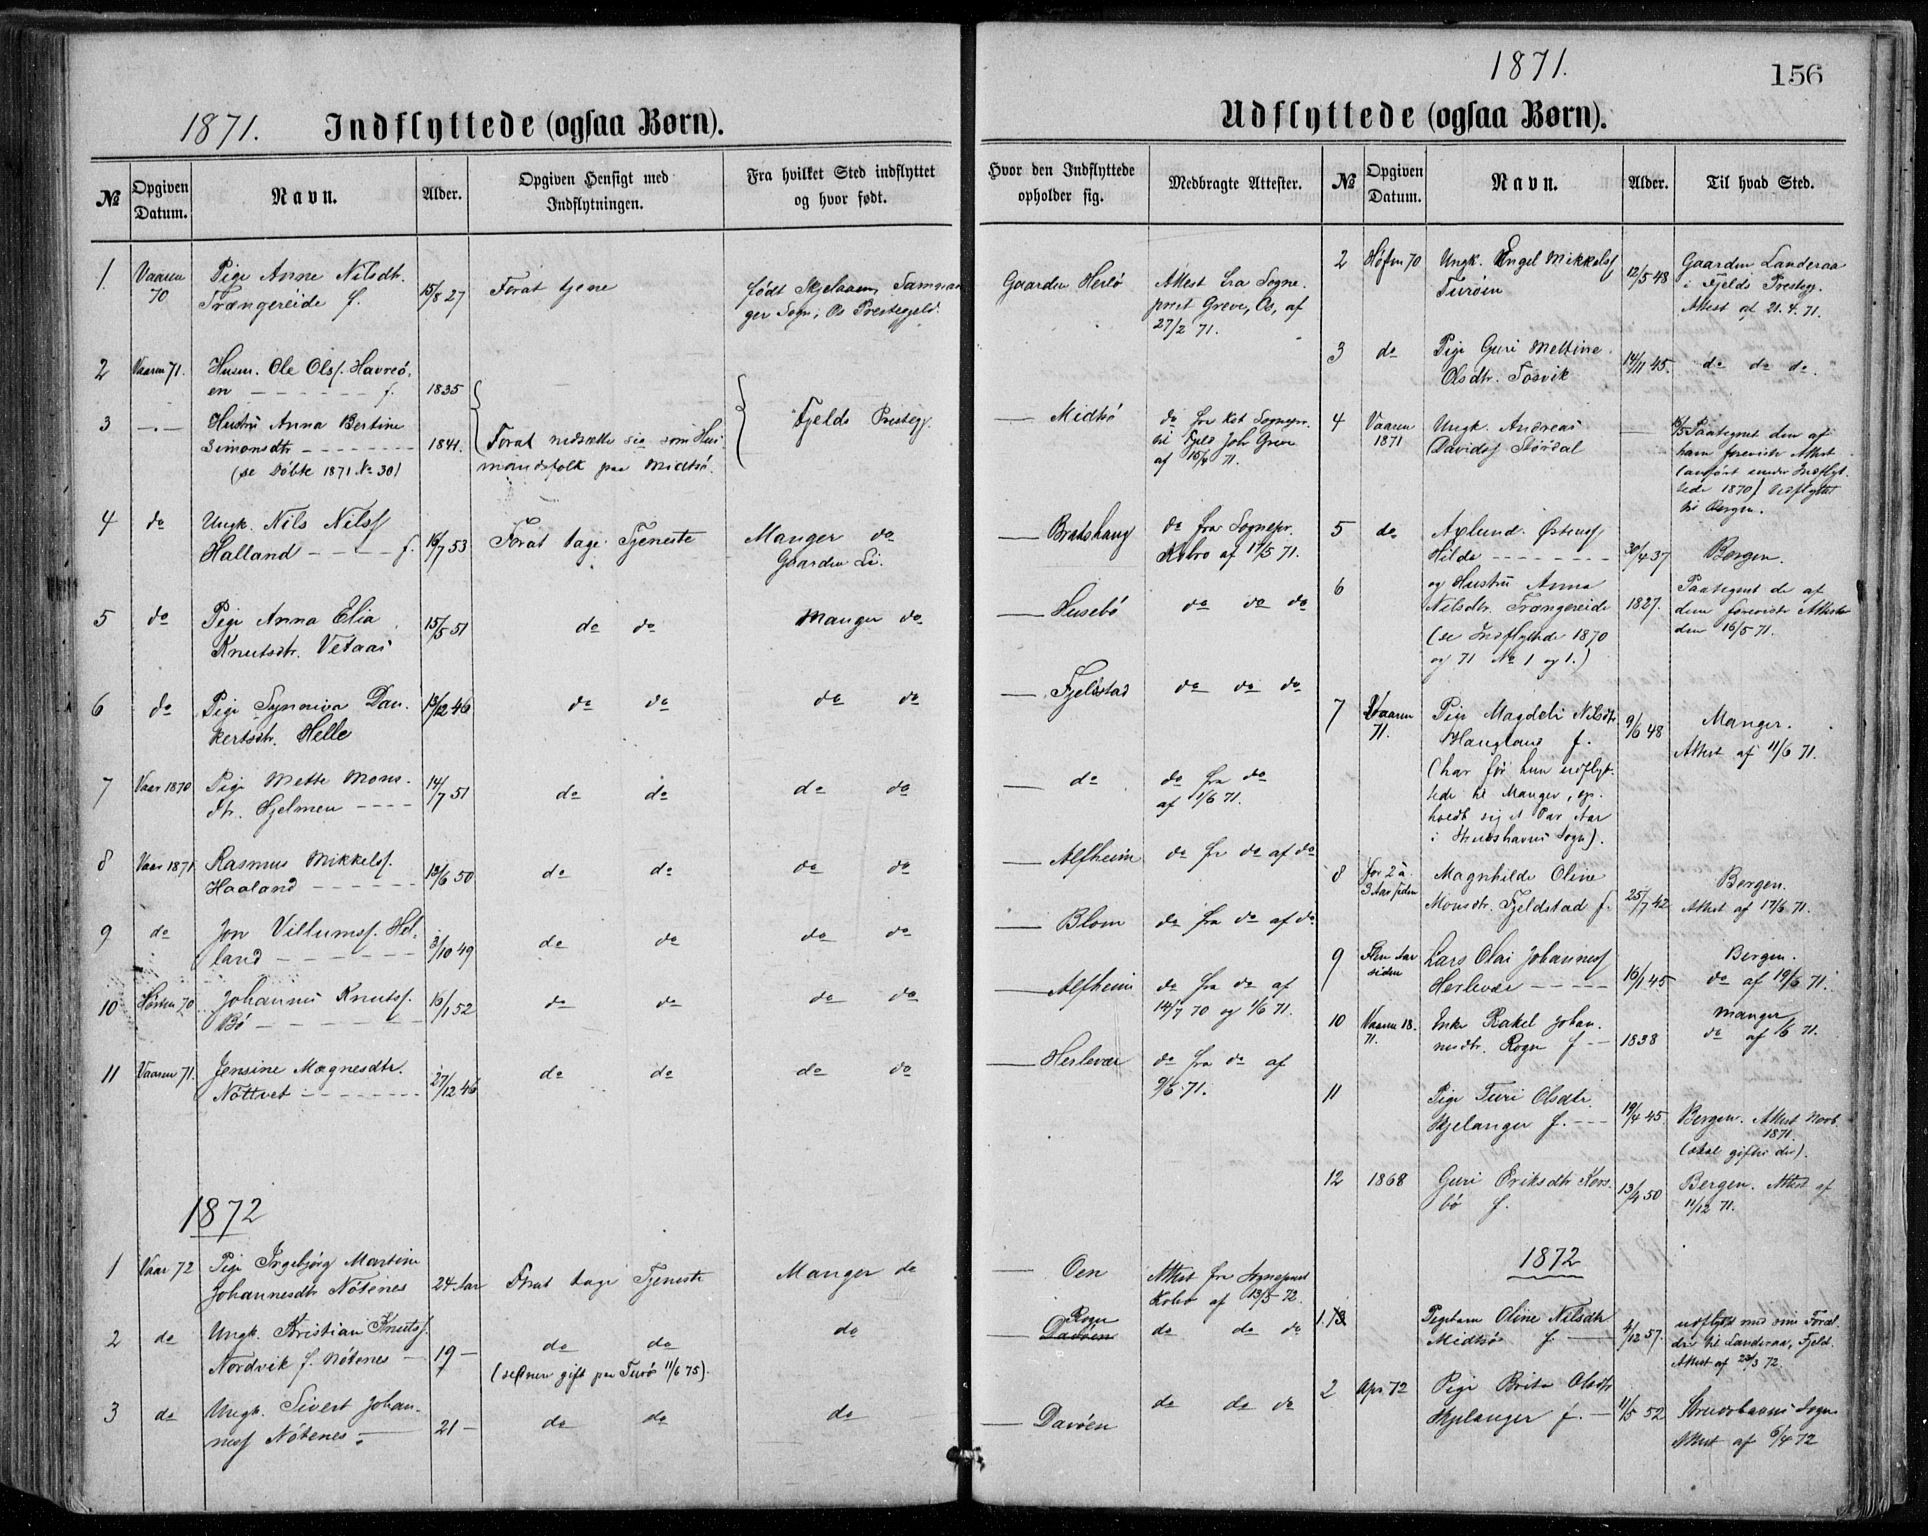 1871.
Indflyttede (ogsaa Børn).
№
Opgiven Datum.
Navn.
Alder.
Opgiven Hensigt med Indflytningen.
Fra hvilket Sted indflyttet og hvor født.
1 Vaaren 70 Pige Anne Nilsdtr. 15/8 27 Forat tjene født Samnan
Trængereide f. ger Sogn, Os Prestegjeld.
2 Vaaren 71. Husm. Ole Olsf. Havreö,
en f. 1835
3 Hustru Anna Bertine Fjelds Prestegj.
Simonsdtr 1841. Forat nedsætte sig som Hus
(se Döbte 1871 No 30) mandsfolk paa Midtsö.
4 do Ungk. Nils Nilsf
Halland f. 16/7 53 Forat tage Tjeneste Manger do
Gaarden Li.
5 do Pige Anna Elia 15/5 51 do do Manger do
Knutsdtr. Vetaas
6 do Pige Synneva Dan 13/12 46 do do do do
kertsdtr. Helle
7 Vaar 1870 Pige Mette Mons 14/7 51 do do do do
dtr. Hjelmen
8 Vaar 1871 Rasmus Mikkelsf. 13/6 50 do do do do
Haaland
9 do Jon Villumsf. Hel 3/10 49 do do do do
land
10 Høsten 70 Johannes Knutsf. 16/1 52 do do do do
Bö
11 Vaaren 71. Jensine Magnesdtr. 27/12 46 do do do do
Nöttvet
1872
1 Vaar 72 Pige Ingebjörg Martine
Johannesdtr Nötenes 24 Aar Forat tage Tjeneste Manger do
2 do Ungk. Kristian Knutsf. do do do
Nordvik f. Nötenes 19 (senere gift paa Turö 11/6 75).
3 do Ungk. Sivert Johan
nesf Nötenes 21 do do do
1871.
156
Udflyttede (ogsaa Børn).
Hvor den Indflyttede opholder sig.
Medbragte Attester.
№
Opgiven Datum.
Navn.
Alder.
Til hvad Sted.
Gaarden Herlö Attest fra Sogne
prest Greve, Os, af
27/2 71.
Midtsö do fra Sognepr.
til Fjeld Joh. Greve
af 15/4 71.
Bratshaug do fra Sognepr.
Kobro af 17/5 71.
Husebö do do do
Fjeldstad do do do
do do fra do
af 1/6 71.
Alfheim do fr do af do
Blom do fra do af do
Alfheim do fra do af
14/7 70 og 1/6 71.
Herlevær do fra do af
9/6 71.
Oen Attest fra Sogneprest
Kobro af 13/5 72.
Rogne
Davöen do do do
Davöen do do do
2 Høsten 70 Ungk. Engel Mikkelsf 12/5 48 Gaarden Landeraa
Turöen i Fjelds Prestegj.
Attest af 21.4.71.
3 do Pige Guri Meltine
Olsdtr. Tosvik 14/11 45. do do do.
4 Vaaren 1871 Ungk. Andreas Paategnet den af
Davidsf Stördal ham foreviste Attest
(anfört under Indflyt
tede 1870) Udflyttet
til Bergen.
5 do Aslund Östensf
Hilde 30/4 37 Bergen.
6 og Hustru Anna Paategnet de af
Nilsdtr. Trængereide 1827. dem foreviste Attester
(se Indflyttede 1870 den 16/5 71.
og 71 No 1 og 1.)
7 Vaaren 71. Pige Magdeli Nilsdtr 9/6 48 Manger.
Haugland f. Attest af 11/6 71.
(har før hun udflyt
tede til Manger, op
holdt sig et Par Aar
i Strudshavns Sogn).
8 for 2 à 3 Aar siden Magnhilde Oline Bergen.
Monsdtr. Fjeldstad f. 25/7 42 Attest af 17/6 71.
9 Aar siden Lars Olai Johannesf Bergen.
Herlevær 16/1 45 do af 19/6 71.
10 Vaaren 18.71. Enke Rakel Johan Manger
nesdtr. Rogne f 1838 do af 6 71.
11 Pige Turi Olsdtr.
Hjelanger f. 19/4 45 Bergen. Attest Novb
1871.
(skal giftes der).
12 1868 Guri Eriksdtr Kors 13/4 50 Bergen. Attest af
bö f. 11/12 71.
1872
1 Pigebarn Oline Nilsdtr udflyttet med sine Foræl
Midtsö f 4/12 57. dre til Landeraa, Fjeld.
Attest af 23/3 72.
2 Apr. 72 Pige Brita Olsdtr
Hjelanger f. 11/5 52 Strudshavns Sogn
Attest af 6/4 72